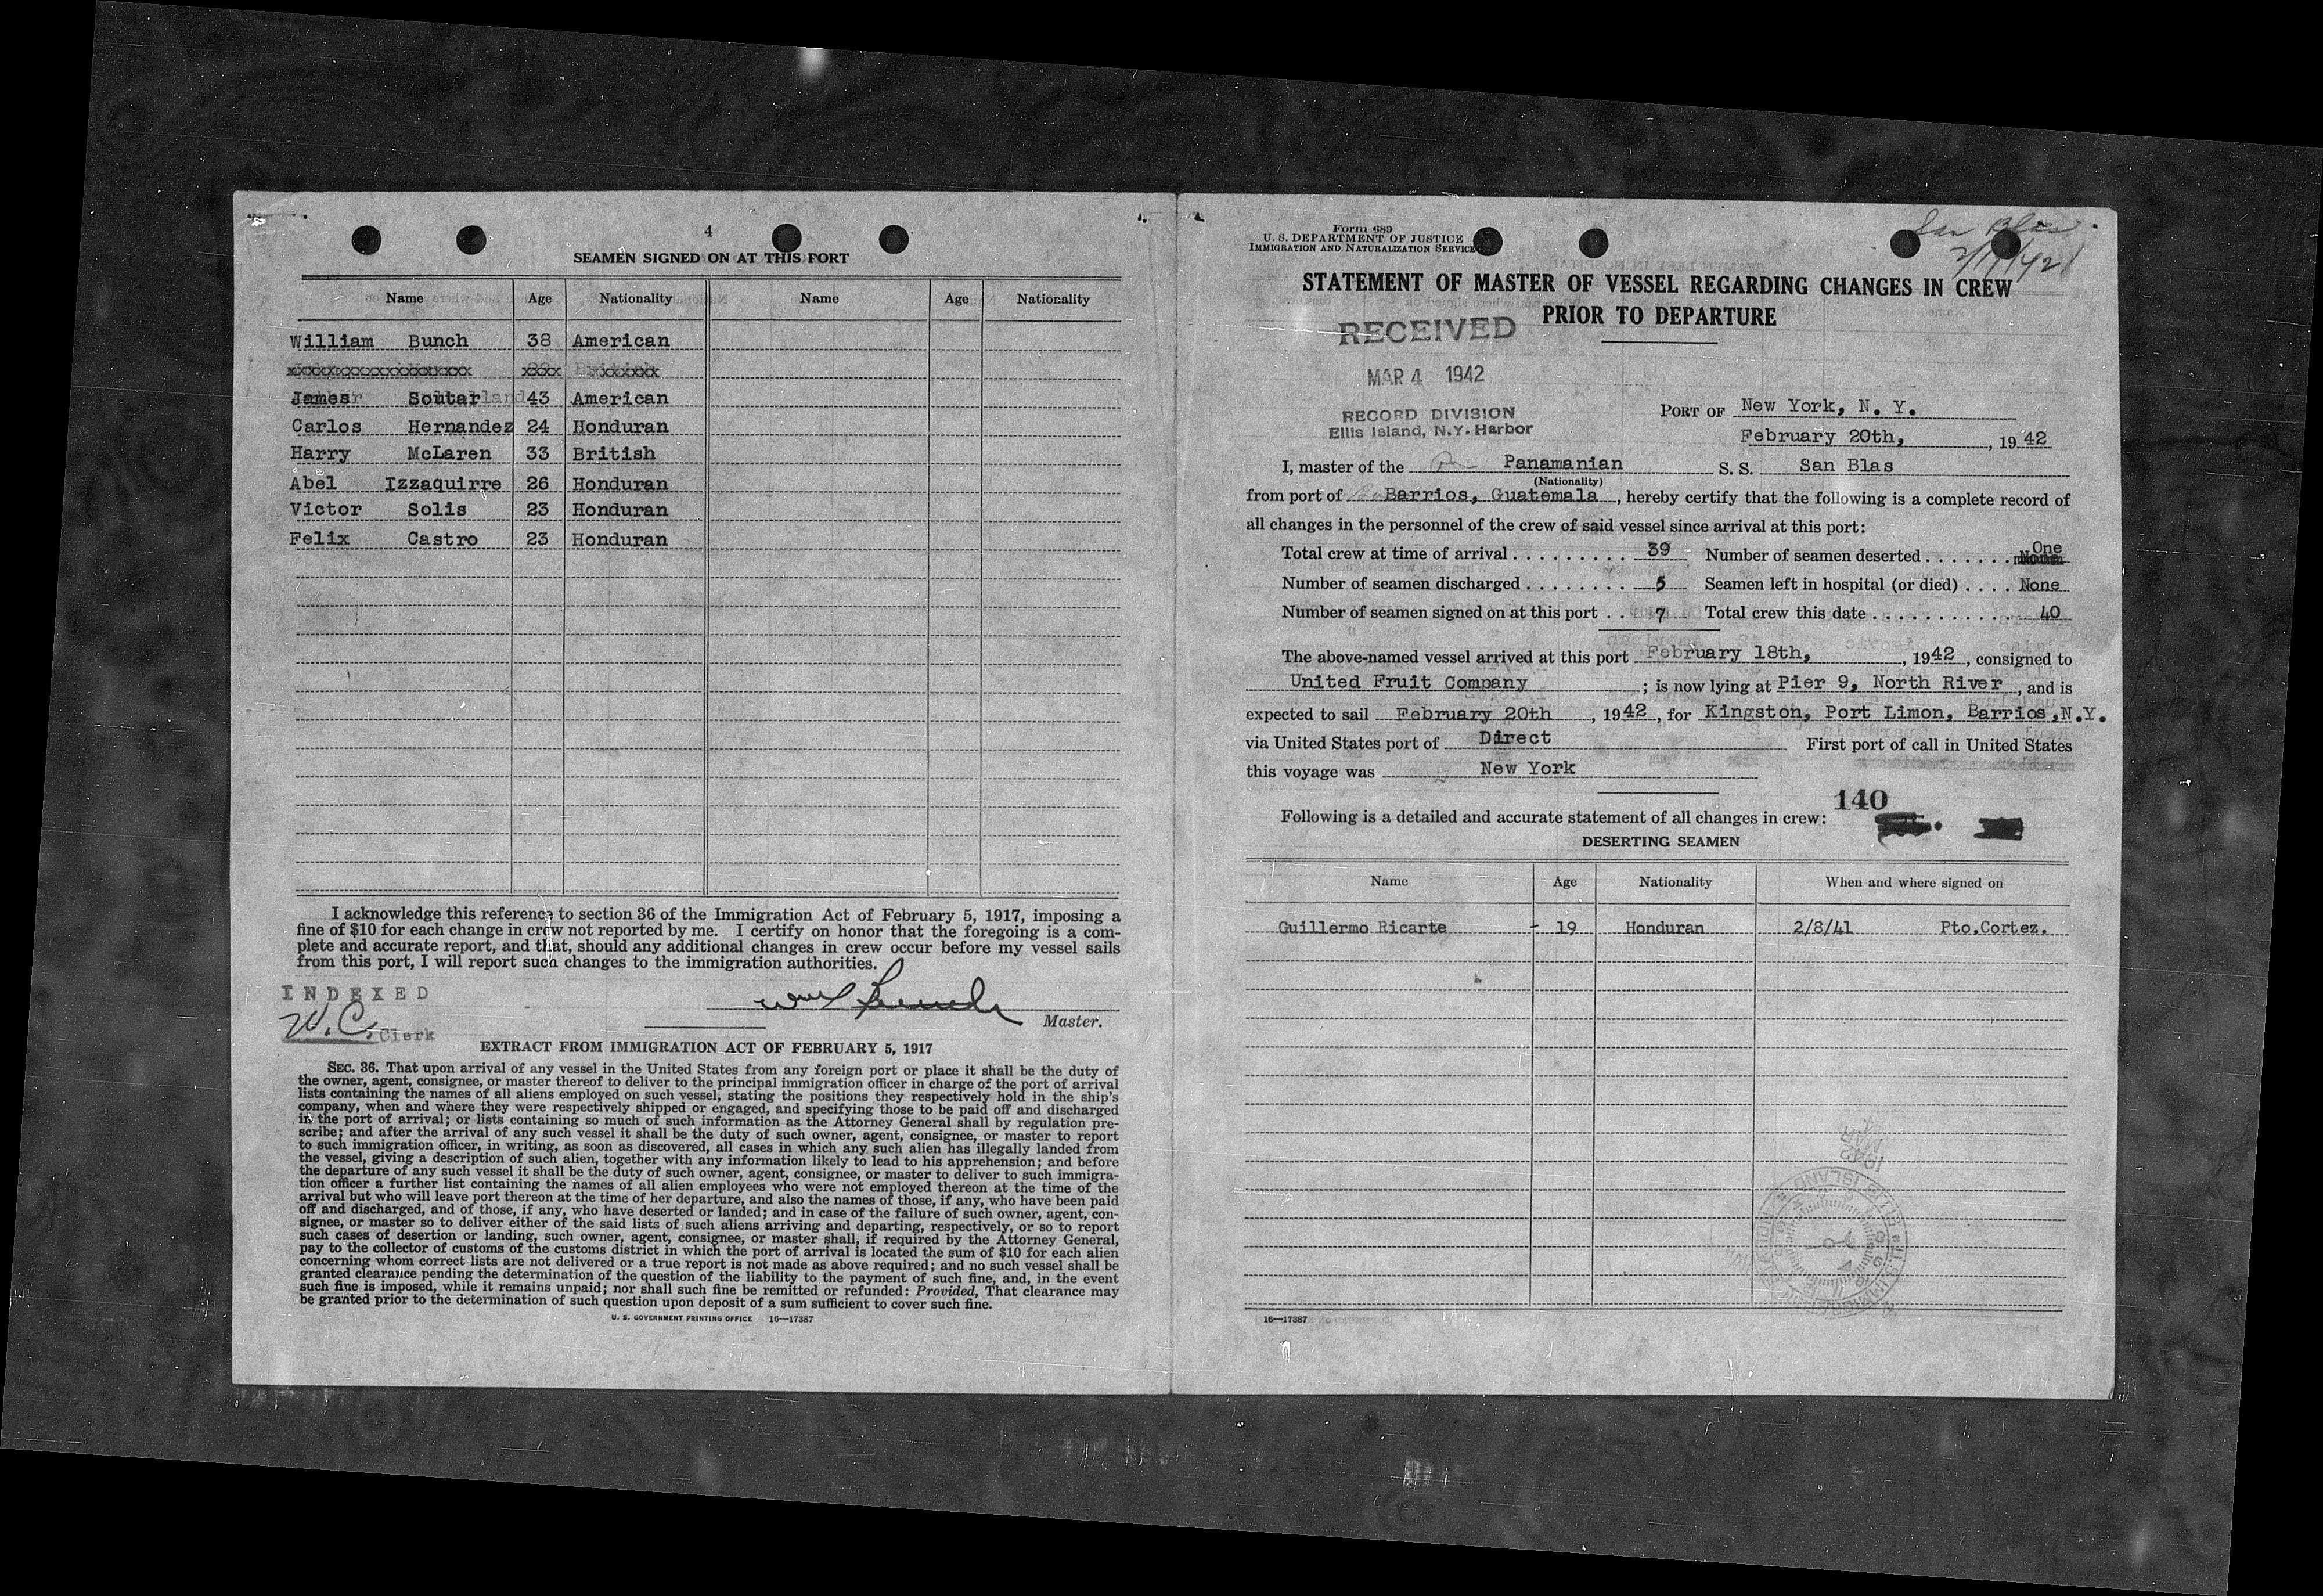 4
SEAMEN SIGNED ON AT THIS PORT
Name Age Nationality Name Age Nationality
William Bunch 38 American
James Soutar 43 American
Carlos Hernandez 24 Honduran
Harry McLaren 33 British
Abel Izzaquirre 26 Honduran
Victor Solis 23 Honduran
Felix Castro 23 Honduran
I acknowledge this reference to section 36 of the Immigration Act of February 5, 1917, imposing a
fine of $10 for each change in crew not reported by me. I certify on honor that the foregoing is a com-
plete and accurate report, and that, should any additional changes in crew occur before my vessel sails
from this port, I will report such changes to the immigration authorities.
INDEXED
W.C. Clerk
Wm Bunch
Master.
EXTRACT FROM IMMIGRATION ACT OF FEBRUARY 5, 1917
SEC. 36. That upon arrival of any vessel in the United States from any foreign port or place it shall be the duty of
the owner, agent, consignee, or master thereof to deliver to the principal immigration officer in charge of the port of arrival
lists containing the names of all aliens employed on such vessel, stating the positions they respectively hold in the ship's
company, when and where they were respectively shipped or engaged, and specifying those to be paid off and discharged
in the port of arrival; or lists containing so much of such information as the Attorney General shall by regulation pre-
scribe; and after the arrival of any such vessel it shall be the duty of such owner, agent, consignee, or master to report
to such immigration officer, in writing, as soon as discovered, all cases in which any such alien has illegally landed from
the vessel, giving a description of such alien, together with any information likely to lead to his apprehension; and before
the departure of any such vessel it shall be the duty of such owner, agent, consignee, or master to deliver to such immigra-
tion officer a further list containing the names of all alien employees who were not employed thereon at the time of the
arrival but who will leave port thereon at the time of her departure, and also the names of those, if any, who have been paid
off and discharged, and of those, if any, who have deserted or landed; and in case of the failure of such owner, agent, con-
signee, or master so to deliver either of the said lists of such aliens arriving and departing, respectively, or so to report
such cases of desertion or landing, such owner, agent, consignee, or master shall, if required by the Attorney General,
pay to the collector of customs of the customs district in which the port of arrival is located the sum of $10 for each alien
concerning whom correct lists are not delivered or a true report is not made as above required; and no such vessel shall be
granted clearance pending the determination of the question of the liability to the payment of such fine, and, in the event
such fine is imposed, while it remains unpaid; nor shall such fine be remitted or refunded: Provided, That clearance may
be granted prior to the determination of such question upon deposit of a sum sufficient to cover such fine.
U. S. GOVERNMENT PRINTING OFFICE 16—17387
Form 689
U. S. DEPARTMENT OF JUSTICE
IMMIGRATION AND NATURALIZATION SERVICE
San Blas
STATEMENT OF MASTER OF VESSEL REGARDING CHANGES IN CREW
PRIOR TO DEPARTURE
RECEIVED
MAR 4 1942
RECORD DIVISION
Ellis Island, N.Y. Harbor
PORT OF New York, N. Y.
February 20th, , 19 42
I, master of the Panamanian S. S. San Blas
(Nationality)
from port of Barrios, Guatemala , hereby certify that the following is a complete record of
all changes in the personnel of the crew of said vessel since arrival at this port:
Total crew at time of arrival . . . . . . . . . . 39 Number of seamen deserted . . . . . . . One
Number of seamen discharged . . . . . . . . 5 Seamen left in hospital (or died) . . . . None
Number of seamen signed on at this port . . 7 Total crew this date . . . . . . . . . . . . 40
The above-named vessel arrived at this port February 18th, , 1942 , consigned to
United Fruit Company ; is now lying at Pier 9, North River , and is
expected to sail February 20th , 1942 , for Kingston, Port Limon, Barrios,N.Y.
via United States port of Direct First port of call in United States
this voyage was New York
140
Following is a detailed and accurate statement of all changes in crew:
DESERTING SEAMEN
Name Age Nationality When and where signed on
Guillermo Ricarte - 19 Honduran 2/8/41 Pto.Cortez.
16—17387